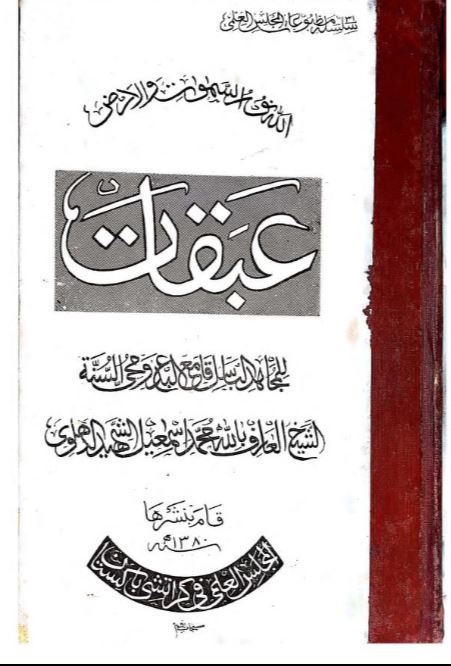 سلسلة مطبوعات المجلس العلمي
الله نور السموات والارض
عبقات
للمجاهد الباسل قامع البدع ومحي السنة
الشيخ العارف بالله محمد اسمعيل الشهيد الدهلوي
قام بنشرها
١٣٨٠ھ
المجلس العلمي في كراتشي باكستان